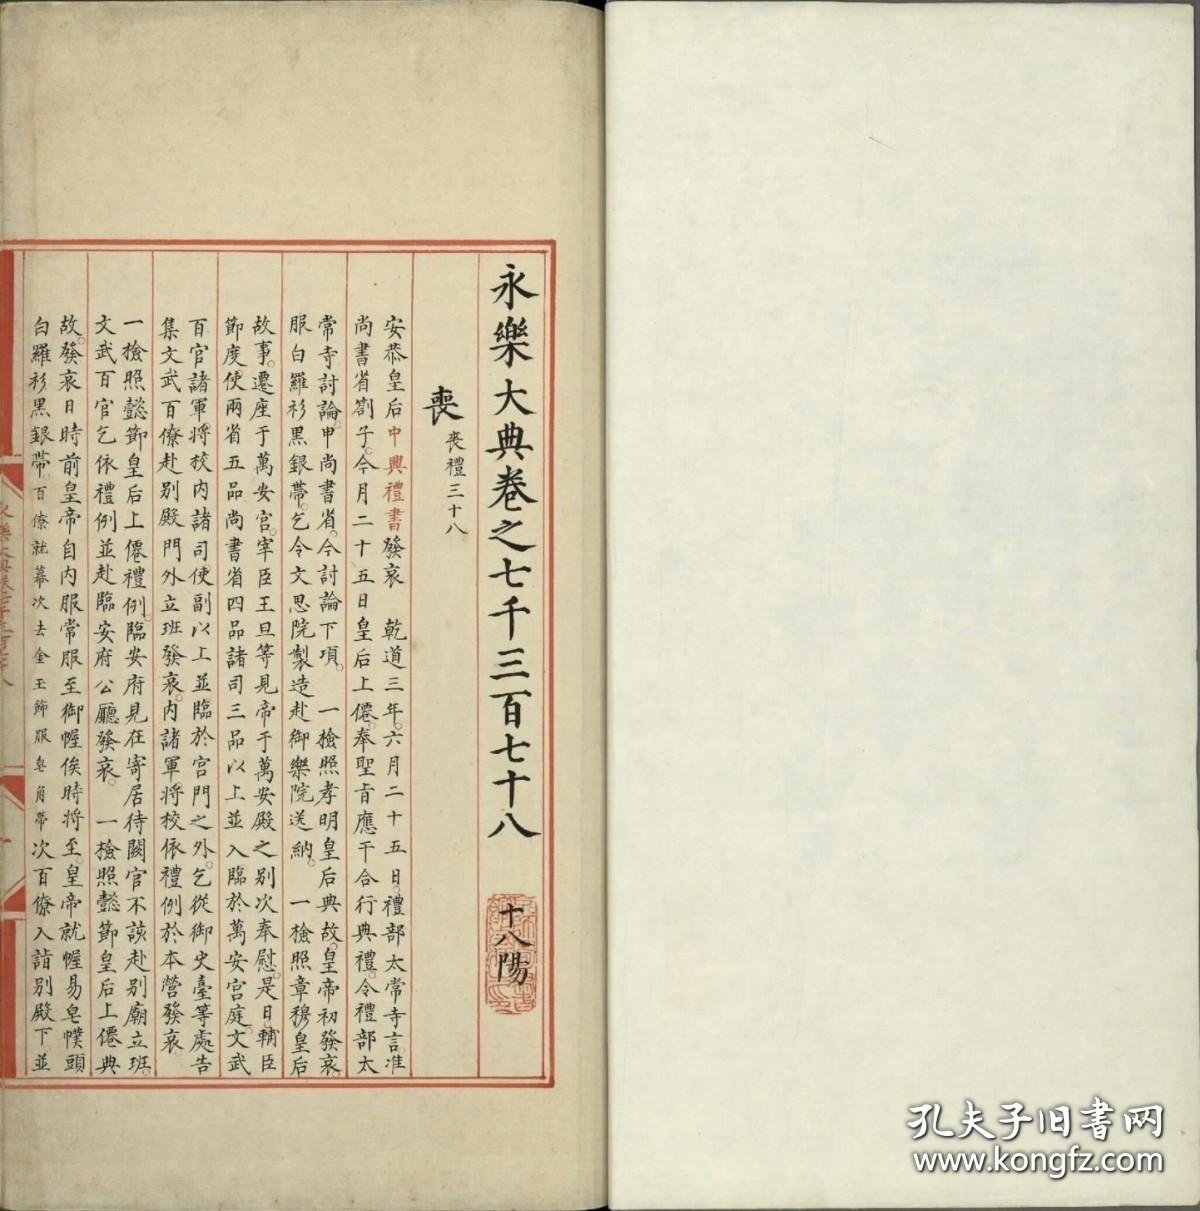 永樂大典卷之七千三百七十八 十八陽
喪 喪禮三十八
安恭皇后中興禮書發哀 乾道三年六月二十五日禮部太常寺言准
尚書省劄子今月二十五日皇后上僊奉聖旨應干合行典禮令禮部太
常寺討論申尚書省今討論下項 一檢照孝明皇后典故皇帝初發哀
服白羅衫黑銀帶乞令文思院製造赴御藥院送納 一檢照章穆皇后
故事遷座于萬安宮宰臣王旦等見帝于萬安殿之別次奉慰是日輔臣
節度使兩省五品尚書省四品諸司三品以上並入臨於萬安宮庭文武
百官諸軍將校內諸司使副以上並臨於宮門之外乞從御史臺等處告
集文武百僚赴別殿門外立班發哀內諸軍將校依禮例於本營發哀
一檢照懿節皇后上僊禮例臨安府見在寄居待闕官不該赴別廟立班
文武百官乞依禮例並赴臨安府公廳發哀 一檢照懿節皇后上僊典
故發哀日時前皇帝自內服常服至御幄俟時將至皇帝就幄易皂幞頭
白羅衫黑銀帶百僚就幕次去金玉飾服皂角帶次百僚入詣別殿下並
孔夫子旧书网
www.kongfz.com